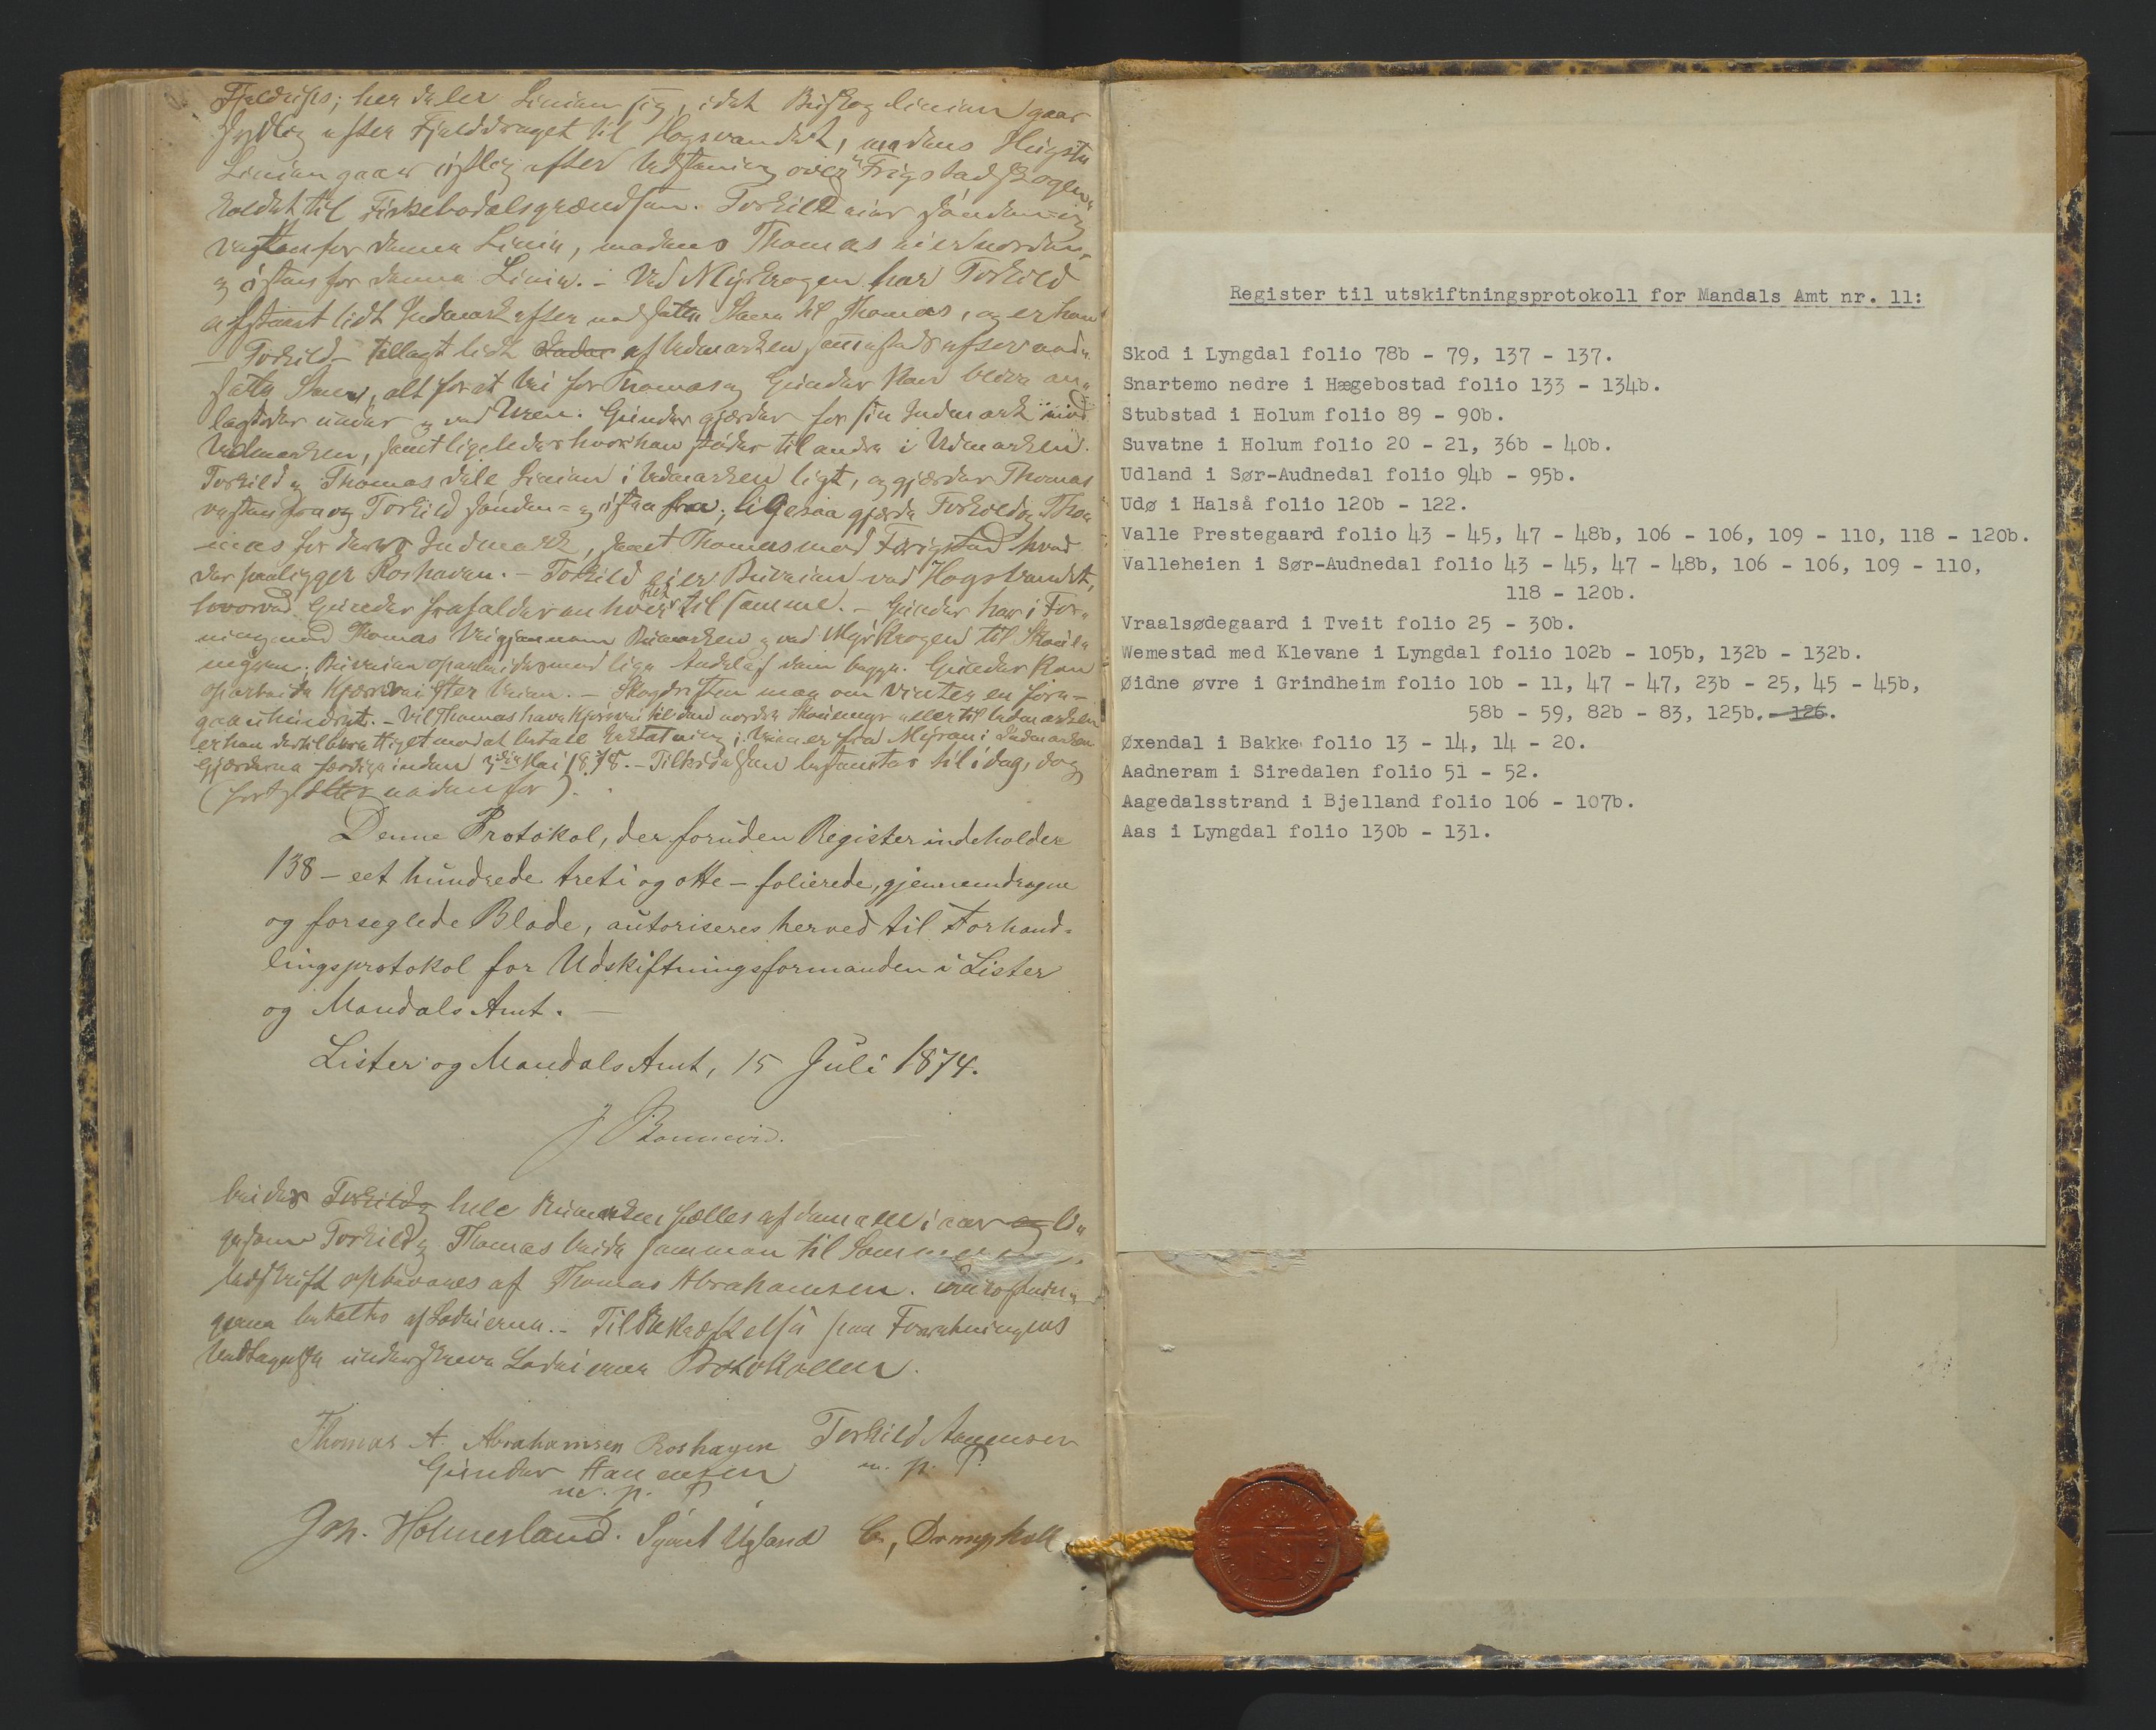 Fjeldrips; her deler Linien sig, idet Buskog linien gaar
sydlig efter Fjelddraget til Hogsvandet, medens Heigste
Linien gaar østlig efter Udstening over "Frigstadskogen"
kaldet til Fiskebodalsgrændsen. Torkild eier sønden- og
vestenfor denne Linie, medens Thomas eier norden-
og østenfor denne Linie. - Ved Myrkrogen har Torkild
afstaaet lidt Indmark efter nedsatte Stene til Thomas, og er han
- Torkild - tillagt lidt af Udmarken sammesteds efter ned-
satte Stene, alt forat Vei for Thomas og Gunder kan blive an-
lagt der under og ved Uren. Gunder gjærder for sin Indmark mod
Udmarken, samt ligeledes hvor han støder til andre i Udmarken.
Torkild og Thomas dele Linien i Udmarken ligt, og gjærder Thomas
vestenfra og Torkild sønden- og østenfra; ligesaa gjærde Torkild og Tho-
mas for deres Indmark, samt Thomas mod Frigstad hvad
der paaligger Roshaven. - Torkild eier Buveien ved Hogsvandet,
hvorved Gunder frafalder enhver Ret til samme. - Gunder har i For-
ening med Thomas Vei gjennem Bumarken og ved Myrkrogen til
Buveien oparbeides med lige Andel af dem begge. Gunder kan
oparbeide Kjørevei efter Veien. - Skogdriften maa om Vinteren fore-
gaa uhindret. - Vil Thomas have Kjørevei til den nordre eller til Udmarken
er han dertil berettiget mod at betale Erstatning; Veien er fra Myran i Indmarken
Gjærderne færdige inden 3die Mai 1878. - Tilhørelsen til i dag, dog
(fortsættes nedenfor).
Denne Protokol, der foruden Register indeholder
138 - eet hundrede treti og otte - folierede, gjennemdragne
og forseglede Blade, autoriseres herved til Forhand-
lingsprotokol for Udskiftningsformanden i Lister
og Mandals Amt. -
Lister og Mandals Amt, 15 Juli 1874.
J Bonnevie.
beides Torkild og hele Bumarken fælles af dem alle i aar og li-
gesom Torkild og Thomas beide sammen til Sommeren
Udskrift opbevares af Thomas Abrahamsen.
gerne betaltes af Lodeierne. - Til Bekræftelse paa Forretningens
Vedtagelse underskreve Lodeierne Protokollen.
Thomas A. Abrahamsen Roshagen Torkild Aanensen
Gunder Aanensen m. p. P.
m. p. P
Joh. Holmesland. Syvert Ugland C,
Register til utskiftningsprotokoll for Mandals Amt nr. 11:
Skod i Lyngdal folio 78b - 79, 137 - 137.
Snartemo nedre i Hægebostad folio 133 - 134b.
Stubstad i Holum folio 89 - 90b.
Suvatne i Holum folio 20 - 21, 36b - 40b.
Udland i Sør-Audnedal folio 94b - 95b.
Udø i Halså folio 120b - 122.
Valle Prestegaard folio 43 - 45, 47 - 48b, 106 - 106, 109 - 110, 118 - 120b.
Valleheien i Sør-Audnedal folio 43 - 45, 47 - 48b, 106 - 106, 109 - 110,
118 - 120b.
Vraalsødegaard i Tveit folio 25 - 30b.
Wemestad med Klevane i Lyngdal folio 102b - 105b, 132b - 132b.
Øidne øvre i Grindheim folio 10b - 11, 47 - 47, 23b - 25, 45 - 45b,
58b - 59, 82b - 83, 125b. - 126.
Øxendal i Bakke folio 13 - 14, 14 - 20.
Aadneram i Siredalen folio 51 - 52.
Aagedalsstrand i Bjelland folio 106 - 107b.
Aas i Lyngdal folio 130b - 131.
LISTER OG MANDALS AMT